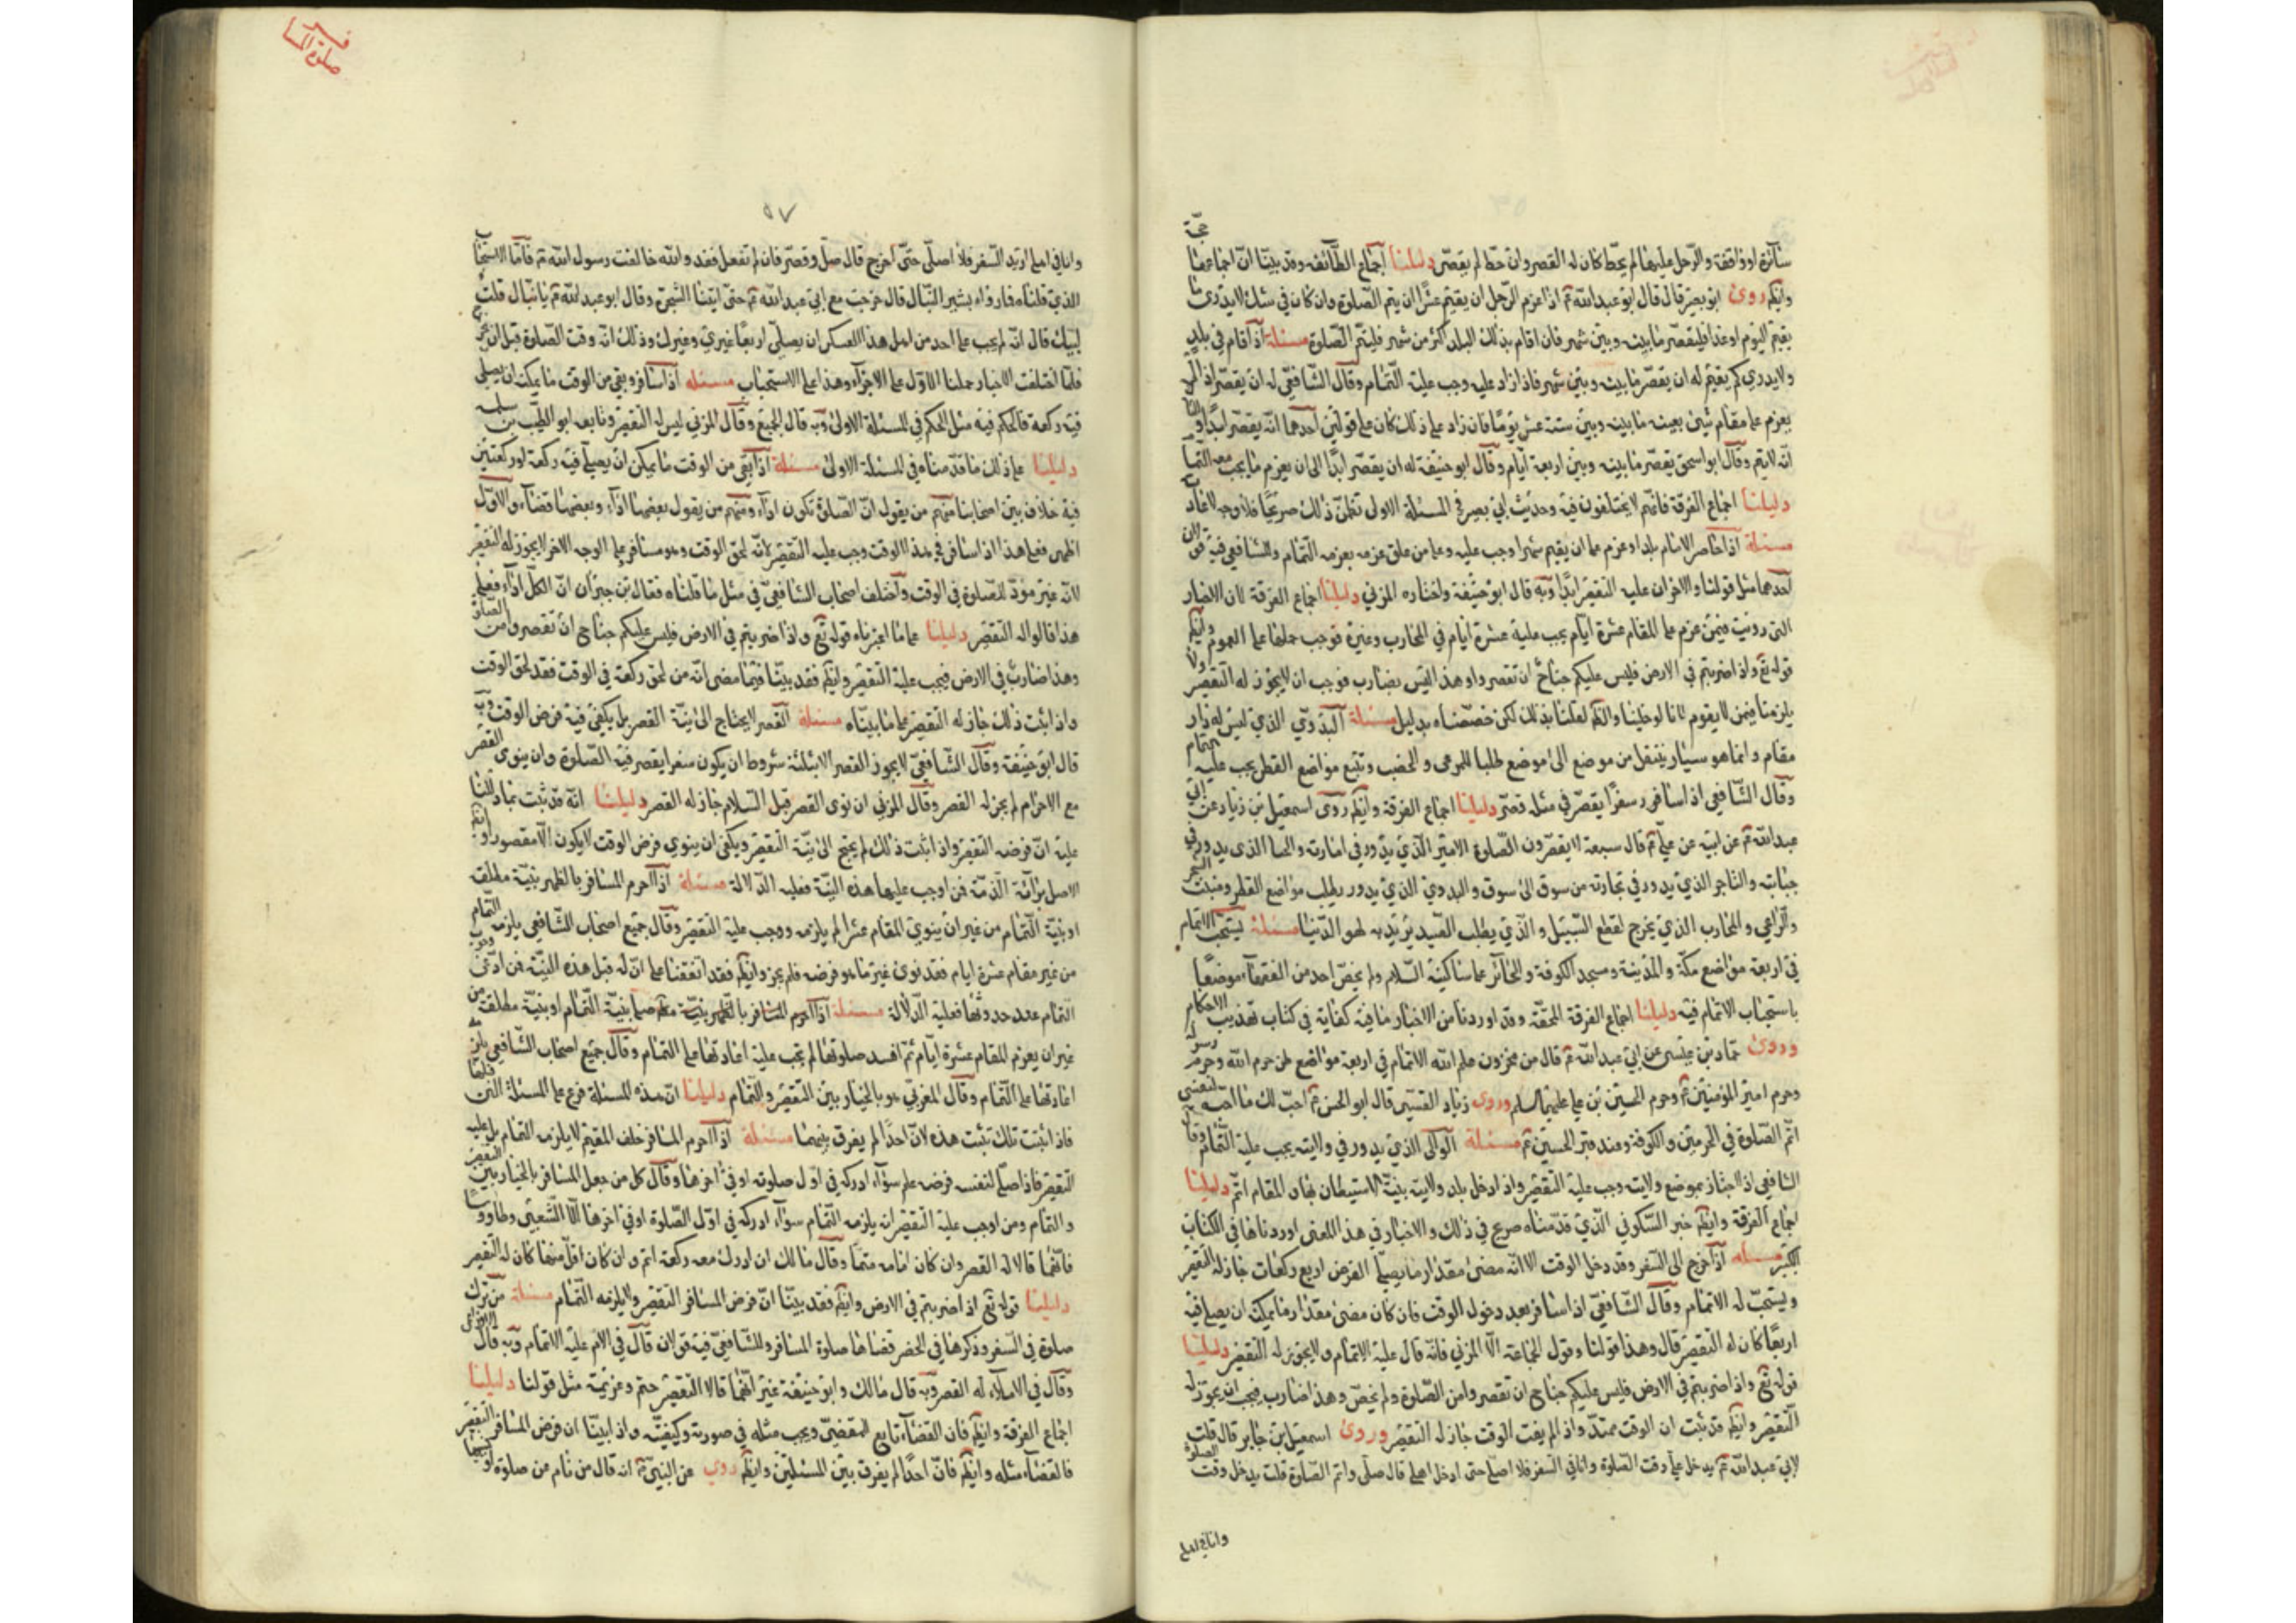 سائرة او واقفة والرحل عليها لم يحط كان له القصر وان حط لم يقصر دليلنا اجماع الطائفة وقد بينا ان اجماعها حجة
وايضًا روى ابو بصير قال قال ابو عبدالله ع اذا عزم الرجل ان يقيم عشرا ان يتم الصلوة وان كان في شك لا يدري ما
يقيم اليوم او غدا فليقصر ما بينه وبين شهر فان اقام بذلك البلد اكثر من شهر فليتم الصلوة مسئلة اذا اقام في بلد
ولا يدري كم يقيم له ان يقصر ما بينه وبين شهر فاذا زاد عليه وجب عليه التمام وقال الشافعي له ان يقصر اذا لم
يعزم على مقام شيئ بعينه ما بينه وبين ستة عشر يوما فان زاد على ذلك كان على قولين احدهما انه يقصر ابدا و
انه لا يتم وقال ابو اسحق يقصر ما بينه وبين اربعة ايام وقال ابو حنيفة له ان يقصر ابدا الى ان يعزم ما يجب معه التمام
دليلنا اجماع الفرقة فانهم لا يختلفون فيه وحديث ابي بصير في المسئلة الاولى تضمن ذلك صريحا فلا وجه لاعادته
مسئلة اذا حاصر الامام بلدا وعزم على ان يقيم شهرا وجب عليه وعلى من علق عزمه بعزمه التمام وللشافعي فيه قولان
احدهما مثل قولنا والاخر ان عليه التقصير ابدا وبه قال ابو حنيفة واختاره المزني دليلنا اجماع الفرقة لان الاخبار
التي رويت فيمن عزم على المقام عشرة ايام يجب عليه عشرة ايام في المحارب وغيره فوجب حملها على العموم وايضًا
قوله تع واذا ضربتم في الارض فليس عليكم جناح ان تقصروا وهذا ليس بضارب فوجب ان لا يجوز له التقصير ولا
يلزمنا فيمن لا يقوم لانا لو خلينا والظاهر لقلنا بذلك لكن خصصناه بدليل مسئلة البدوي الذي ليس له دار
مقام وانما هو سيار ينتقل من موضع الى موضع طلبا للمرعى والخصب وتتبع مواضع القطر يجب عليه التمام
وقال الشافعي اذا سافر سفرا يقصر في مثله قصر دليلنا اجماع الفرقة وايضًا روى اسمعيل بن زياد عن ابي
عبدالله ع عن ابيه عن علي ع قال سبعة لا يقصرون الصلوة الامير الذي يدور في امارته والجبا الذي يدور في
جبايته والتاجر الذي يدور في تجارته من سوق الى سوق والبدوي الذي يدور يطلب مواضع القطر ومنبت الشجر
والراعي والمحارب الذي يخرج لقطع السبيل والذي يطلب الصيد يريد به لهو الدنيا مسئلة يستحب الاتمام
في اربعة مواضع مكة والمدينة ومسجد الكوفة والحائر على ساكنه السلام ولم يخص احد من الفقهاء موضعا
باستحباب الاتمام فيه دليلنا اجماع الفرقة المحقة وقد اوردنا من الاخبار ما فيه كفاية في كتاب تهذيب الاحكام
وروى حماد بن عيسى عن ابي عبدالله ع قال من مخزون علم الله الاتمام في اربعة مواضع حرم الله وحرم رسوله
وحرم امير المؤمنين ع وحرم الحسين بن علي عليهما السلم وروى زياد القندي قال ابو الحسن ع احب لك ما احبه لنفسي
اتم الصلوة في الحرمين والكوفة وعند قبر الحسين ع مسئلة الوالي الذي يدور في ولايته يجب عليه التمام وقال
الشافعي اذا اجتاز بموضع ولايته وجب عليه التقصير واذا دخل بلد ولايته بنية الاستيطان بها والمقام اتم دليلنا
اجماع الفرقة وايضًا خبر السكوني الذي قدمناه صريح في ذلك والاخبار في هذا المعنى اوردناها في الكتاب
الكبير مسئله اذا خرج الى السفر وقد دخل الوقت الا انه مضى مقدار ما يصلى الفرض اربع ركعات جاز له التقصير
ويستحب له الاتمام وقال الشافعي اذا سافر بعد دخول الوقت فان كان مضى مقدار ما يمكنه ان يصلي فيه
اربعا كان له التقصير قال وهذا قولنا وقول الجماعة الا المزني فانه قال عليه الاتمام ولا يجوز له التقصير دليلنا
قوله تع واذا ضربتم في الارض فليس عليكم جناح ان تقصروا من الصلوة ولم يخص وهذا ضارب فيجب ان يجوز له
التقصير وايضًا قد ثبت ان الوقت ممتد واذا لم يفت الوقت جاز له التقصير وروى اسمعيل بن جابر قال قلت
لابي عبدالله ع يدخل علي وقت الصلوة وانا في السفر فلا اصلي حتى ادخل اهلي قال صلى واتم الصلوة قلت يدخل وقت الصلوة
وانا في اهلي
٥٧
وانا في اهلي اريد السفر فلا اصلى حتى اخرج قال صل وقصر فان لم تفعل فقد والله خالفت رسول الله ص فاما الاستحباب
الذي قلناه فما رواه بشير النبال قال خرجت مع ابي عبدالله ع حتى اتينا الشجرة وقال ابو عبدالله ع يا نبال قلت
لبيك قال انه لم يجب على احد من اهل هذا العسكر ان يصلي اربعا غيري وغيرك وذلك انه وقت الصلوة قبل ان نخرج
فلما اختلفت الاخبار حملنا الاول على الاجزاء وهذا على الاستحباب مسئله اذا سافر وبقي من الوقت ما يمكنه ان يصلي
فيه ركعة فالحكم فيه مثل الحكم في المسئلة الاولى وبه قال الجميع وقال المزني ليس له التقصير وتابعه ابو الطيب بن سلمه
دليلنا على ذلك ما قدمناه في المسئلة الاولى مسئلة اذا بقي من الوقت ما يمكن ان يصلي فيه ركعة او ركعتين
فيه خلاف بين اصحابنا منهم من يقول ان الصلوة تكون اداء ومنهم من يقول بعضها اداء وبعضها قضاء والاول
اظهر فعلى هذا اذا سافر في هذا الوقت وجب عليه التقصير لانه لحق الوقت وهو مسافر وعلى الوجه الاخر لا يجوز له التقصير
لانه غير مؤد للصلوة في الوقت واختلف اصحاب الشافعي في مثل ما قلناه فقال بن خيران ان الكل اداء فعلى
هذا قالوا له التقصير دليلنا على ما اخترناه قوله تع واذا ضربتم في الارض فليس عليكم جناح ان تقصروا من الصلوة
وهذا ضارب في الارض فيجب عليه التقصير وايضًا فقد بينا فيما مضى انه من لحق ركعة في الوقت فقد لحق الوقت
واذا ثبت ذلك جاز له التقصير على ما بيناه مسئلة القصر لا يحتاج الى نية القصر بل يكفي فيه فرض الوقت وبه
قال ابو حنيفة وقال الشافعي لا يجوز القصر الا بثلثة شروط ان يكون سفرا يقصر فيه الصلوة وان ينوى القصر
مع الاحرام لم يجز له القصر وقال المزني ان نوى القصر قبل السلام جاز له القصر دليلنا انه قد ثبت بما دللنا
عليه ان فرضه التقصير واذا ثبت ذلك لم يحتج الى نية التقصير ويكفي ان ينوي فرض الوقت لا يكون الا مقصورا وايضًا
الاصل برائة الذمة فمن اوجب عليها هذه النية فعليه الدلالة مسئلة اذا احرم المسافر بالظهر بنية مطلقة
او بنية التمام من غير ان ينوي المقام عشرا لم يلزمه ووجب عليه التقصير وقال جميع اصحاب الشافعي يلزمه التمام
من غير مقام عشرة ايام فقد نوى غير ما هو فرضه فلم يجز وايضًا فقد اتفقنا على ان له قبل هذه النية فمن ادعى وجوب
التمام عند حدوثها فعليه الدلالة مسئلة اذا احرم المسافر بالظهر بنية التمام او بنية مطلقة من
غير ان يعزم للمقام عشرة ايام ثم افسد صلوتها لم يجب عليه اعادتها على التمام وقال جميع اصحاب الشافعي يلزمه
اعادتها على التمام وقال المغربي هو بالخيار بين التقصير والتمام دليلنا ان هذه المسئلة فرع على المسئلة التي قلناها
فاذا ثبتت تلك ثبتت هذه لان احدا لم يفرق بينهما مسئلة اذا احرم المسافر خلف المقيم لا يلزمه التمام بل عليه
التقصير فاذا صلى لنفسه فرضه سلم سواء ادركه في اول صلوته او في اخرها وقال كل من جعل المسافر بالخيار بين التقصير
والتمام ومن اوجب عليه التقصير انه يلزمه التمام سواء ادركه في اول الصلوة او في اخرها الا الشعبي وطاووسا
فانهما قالا له القصر وان كان امامه متما وقال مالك ان ادرك معه ركعة اتم وان كان اقل منها كان له التقصير
دليلنا قوله تع اذا ضربتم في الارض وايضًا فقد بينا ان فرض المسافر التقصير ولا يلزمه التمام مسئلة من ترك
صلوة في السفر وذكرها في الحضر قضاها صلوة المسافر وللشافعي فيه قولان قال في الام عليه الاتمام وبه قال الاوزاعي
وقال في الاملاء له القصر وبه قال مالك وابو حنيفة غير انهما قالا التقصير حتم وعزيمة مثل قولنا دليلنا
اجماع الفرقة وايضًا فان القضاء تابع للمقضي ويجب مثله في صورته وكيفيته واذا بينا ان فرض المسافر التقصير
فالقضاء مثله وايضًا فان احدا لم يفرق بين المسئلتين وايضًا روي عن النبي ص انه قال من نام عن صلوة او نسيها